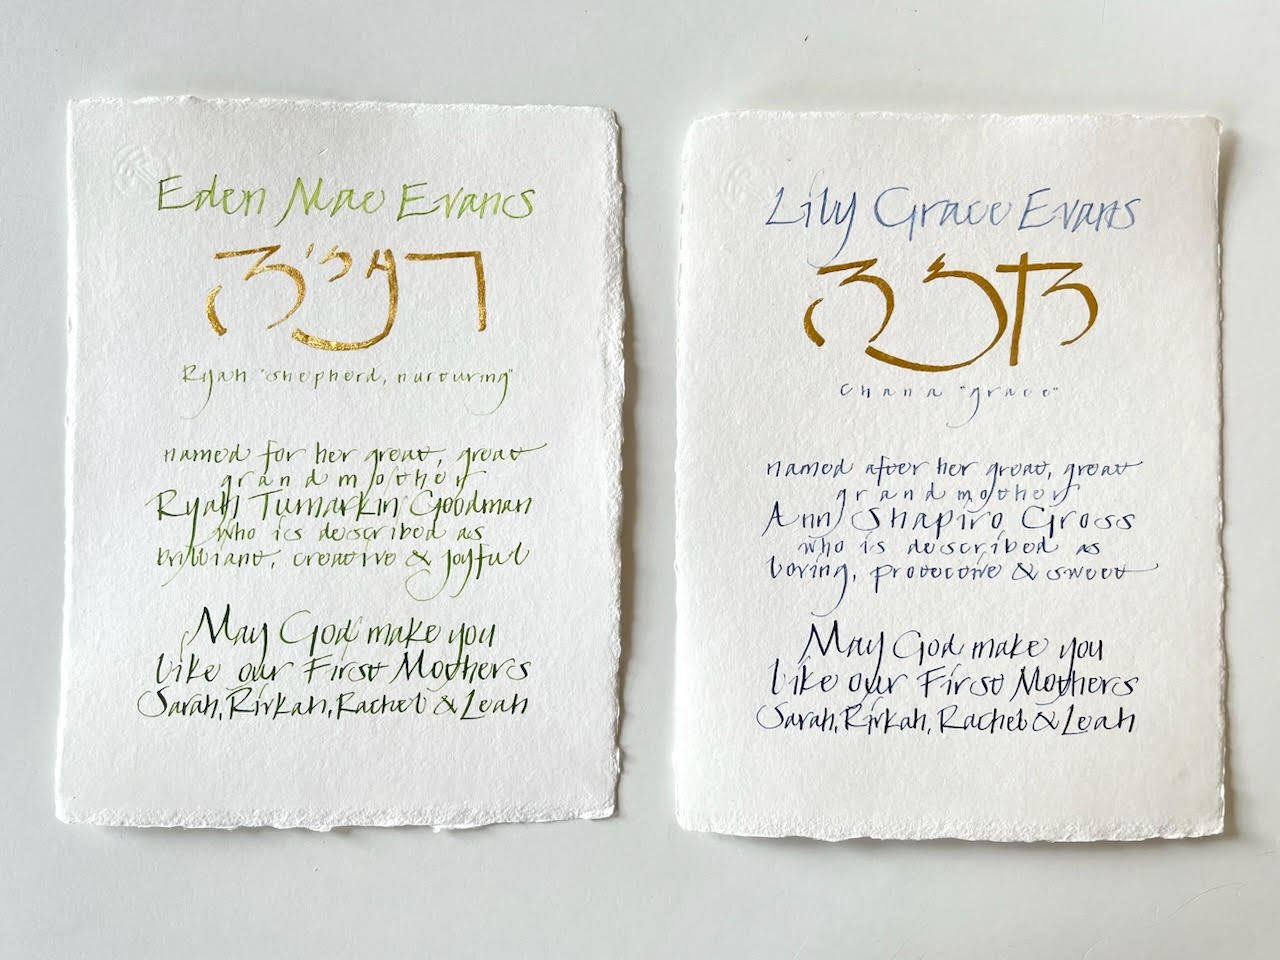 Eden Mae Evans
רעיה
Ryah "shepherd, nurturing"
named for her great, great
grandmother
Ryah Tumarkin Goodman
who is described as
brilliant, creative & joyful
May God make you
like our First Mothers
Sarah, Rivkah, Rachel & Leah
Lily Grace Evans
חנה
Chana "grace"
named after her great, great
grandmother
Ann Shapiro Gross
who is described as
loving, protective & sweet
May God make you
like our First Mothers
Sarah, Rivkah, Rachel & Leah